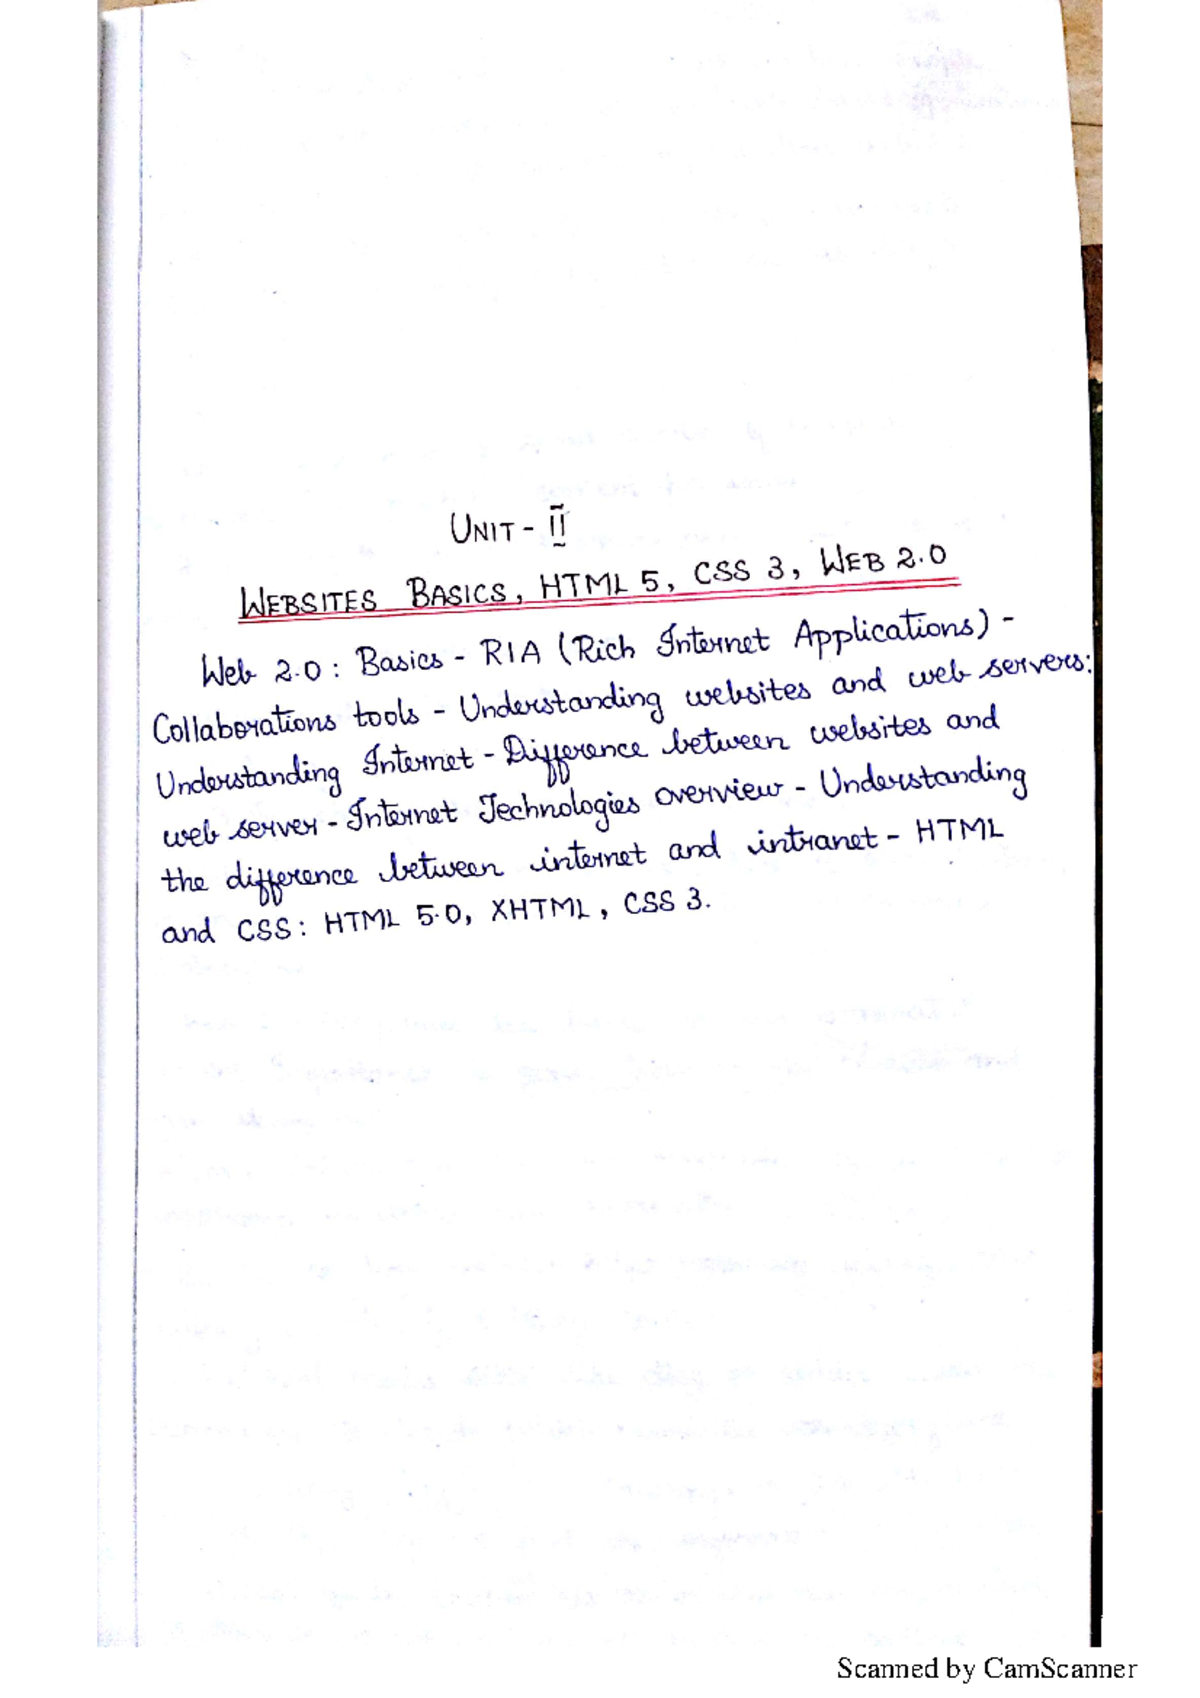 UNIT - II
WEBSITES BASICS, HTML 5, CSS 3, WEB 2.0
Web 2.0: Basics - RIA (Rich Internet Applications) -
Collaborations tools - Understanding websites and web servers:
Understanding Internet - Difference between websites and
web server - Internet Technologies overview - Understanding
the difference between internet and intranet - HTML
and CSS: HTML 5.0, XHTML, CSS 3.
Scanned by CamScanner